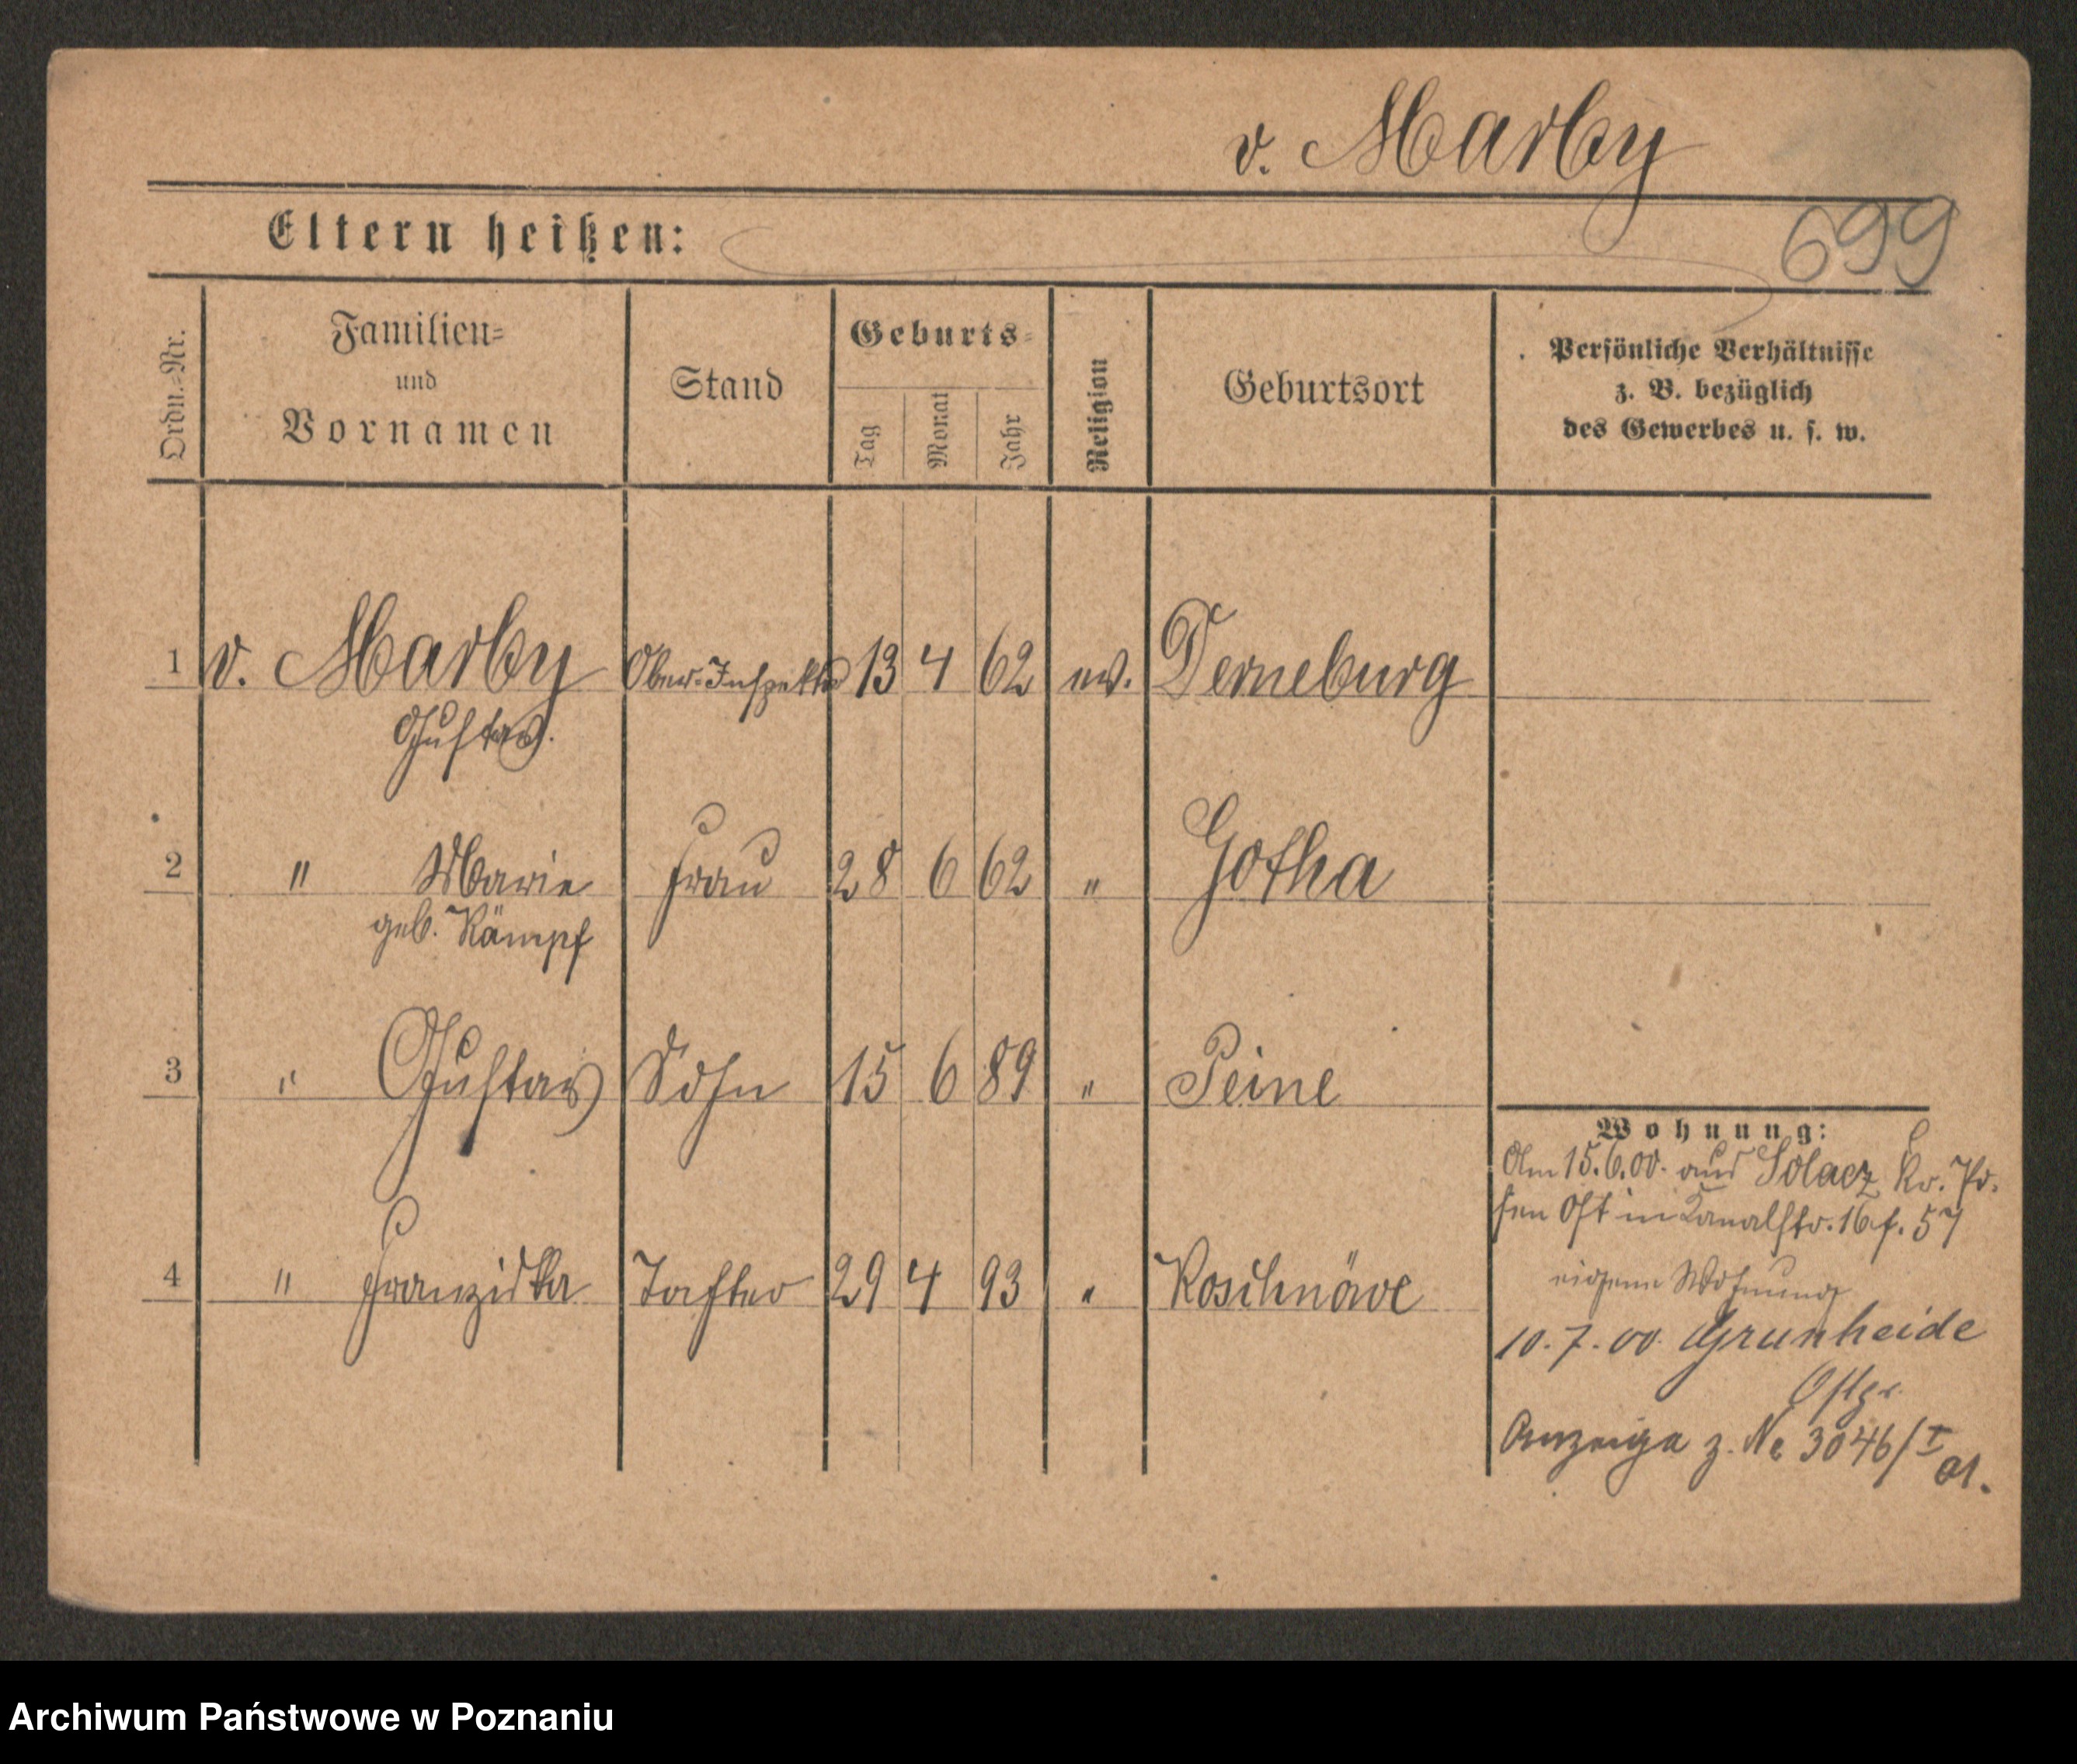 v. Marby
699
Eltern heißen:
Ordn.-Nr.
Familien-
und
Vornamen
Stand
Geburts-
Tag
Monat
Jahr
Religion
Geburtsort
Persönliche Verhältnisse
z. B. bezüglich
des Gewerbes u. s. w.
1 v. Marby Ober-Inspektor 13 4 62 ev. Derneburg
Gustav.
2 " Marie Frau 28 6 62 " Gotha
geb. Kämpf
3 " Gustav Sohn 15 6 89 " Peine
4 " Franziska Tochter 29 4 93 "
Wohnung:
Am 15.6.00. aus Solacz Kr. Po-
sen Ost in Kanalstr. 16 f. 57
eigene Wohnung
10.7.00. Grunheide
Anzeige z. No 3046/I
01.
Archiwum Państwowe w Poznaniu